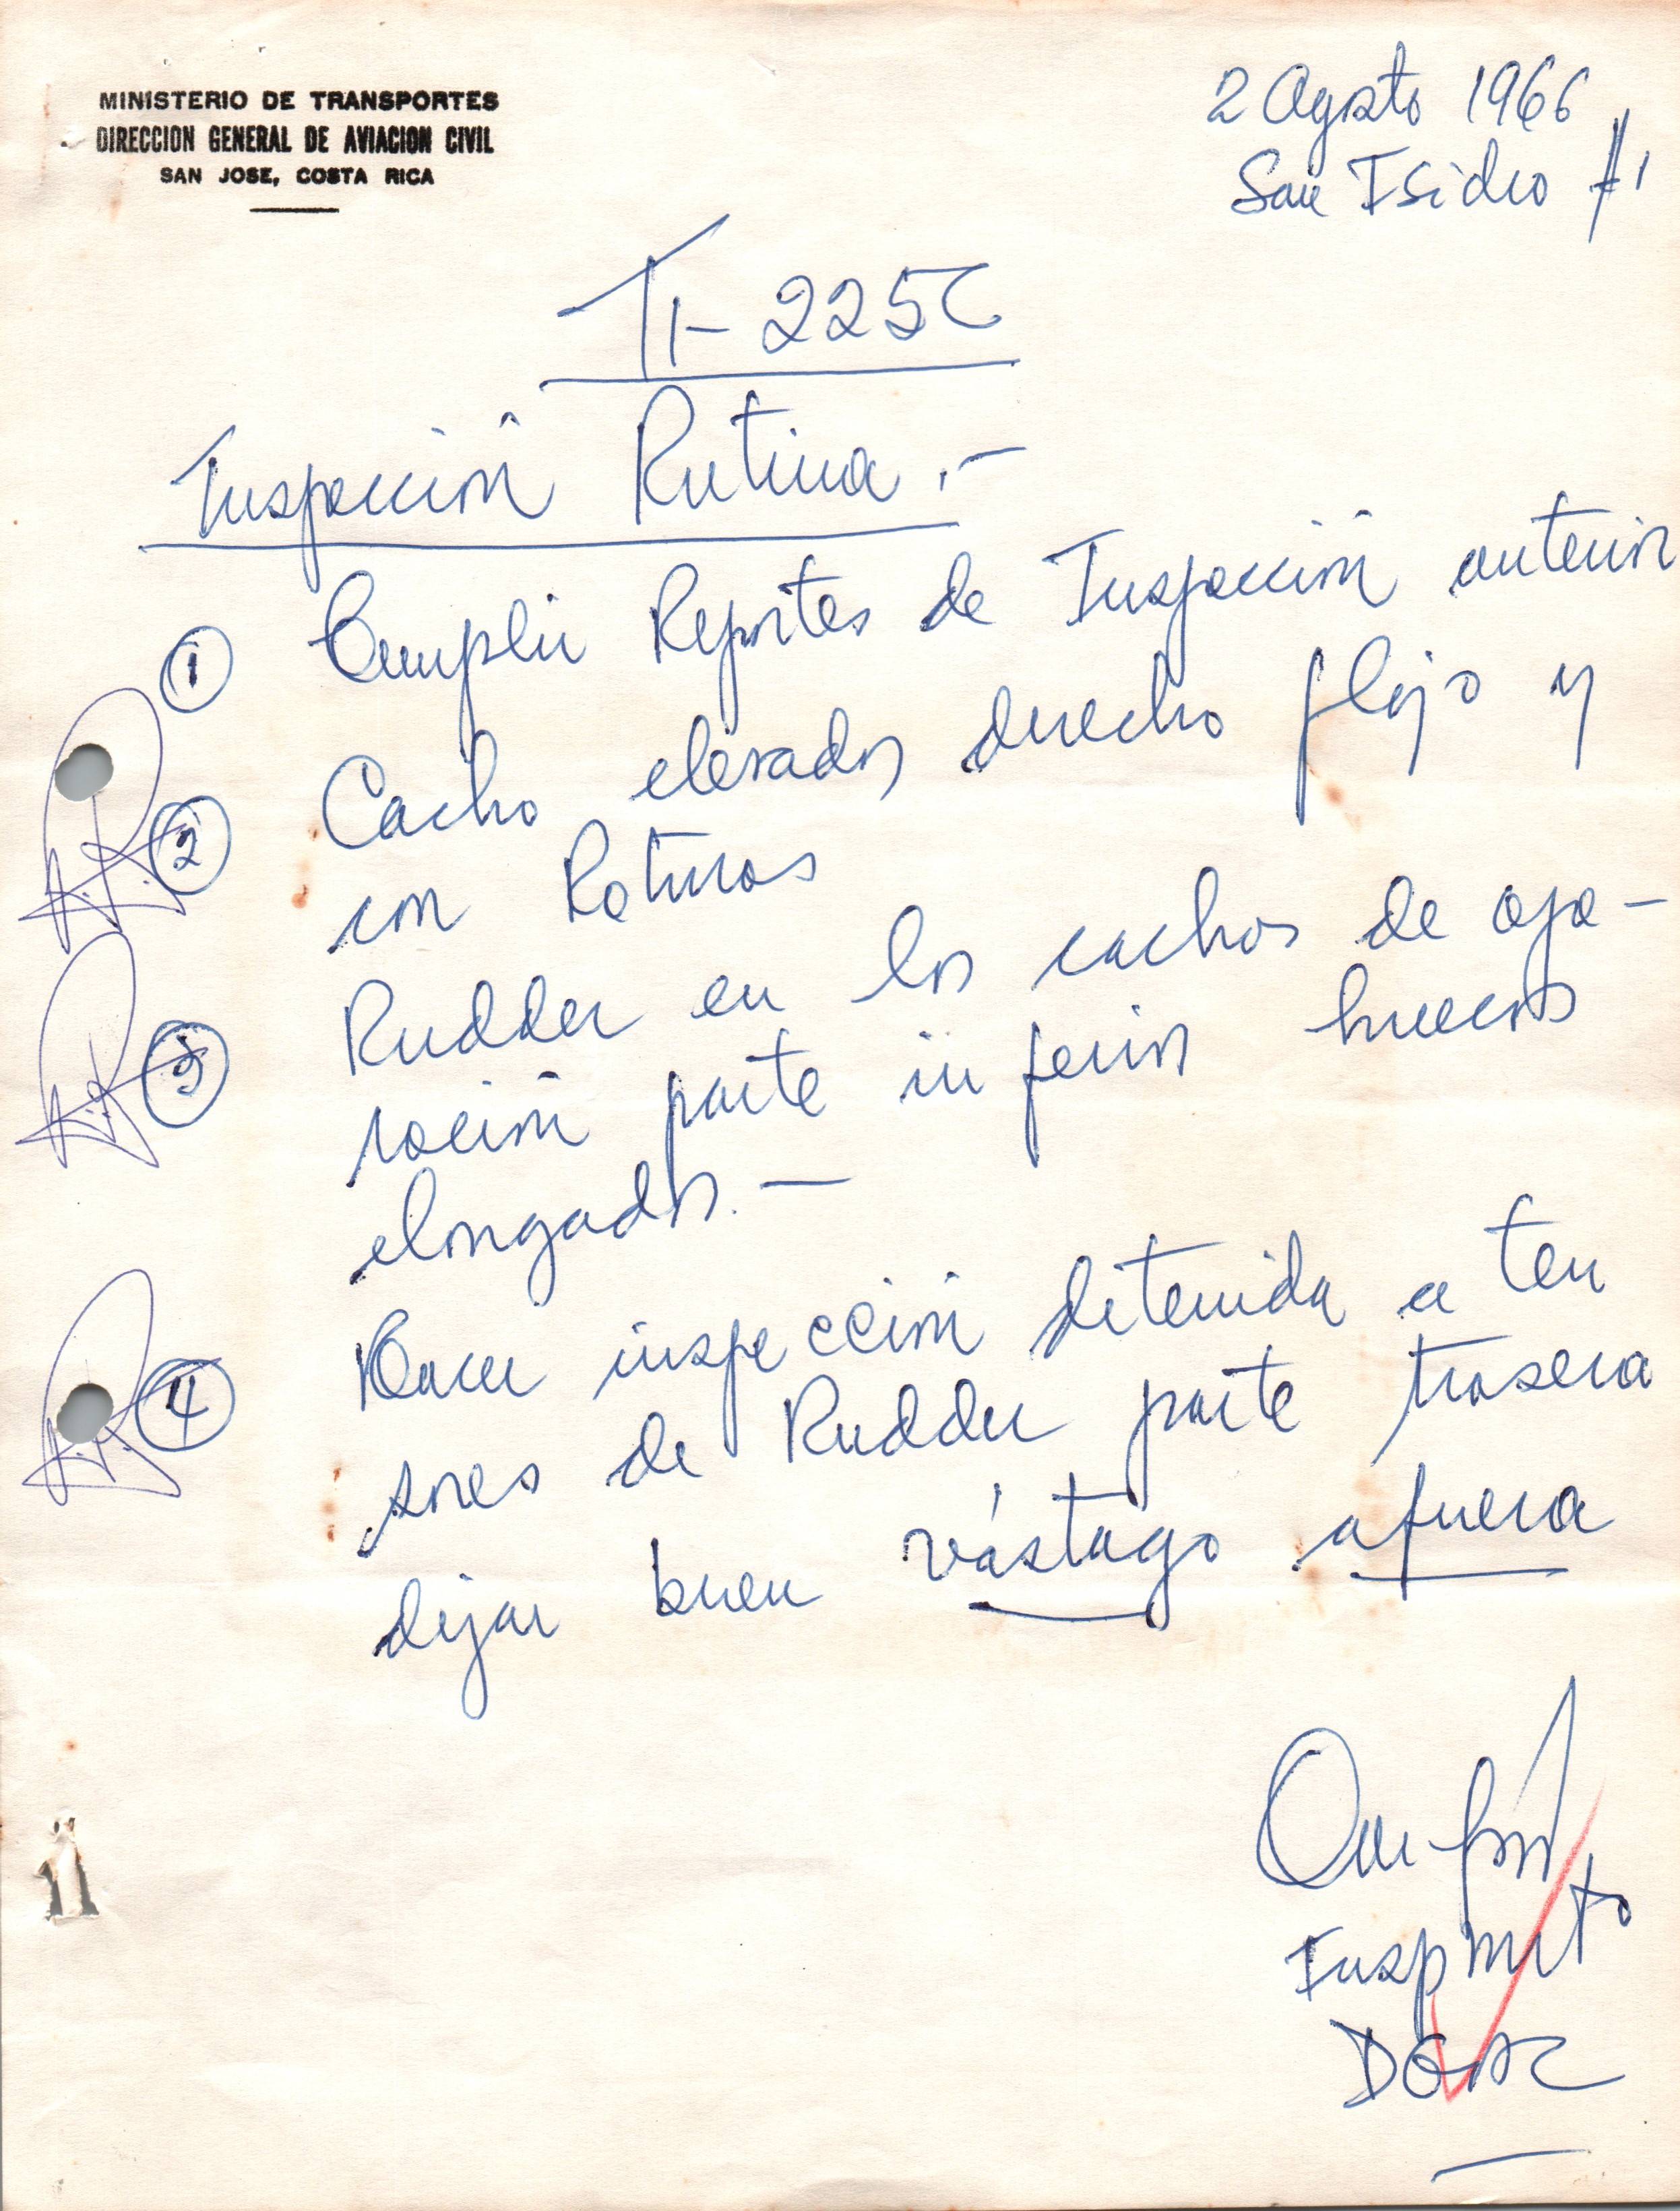 MINISTERIO DE TRANSPORTES
DIRECCION GENERAL DE AVIACION CIVIL
SAN JOSE, COSTA RICA
2 Agosto 1966
San Isidro #1
TI-225C
Inspección Rutina.-
1 Cumplir Reportes de Inspección anterior
2 Cacho elevador derecho flojo y
con Roturas
3 Rudder en los cachos de opo-
sición parte inferior huecos
elongados.-
4 Hacer inspección detenida a ten
sores de Rudder parte trasera
dejar buen vástago afuera
Insp Mto
DGAC